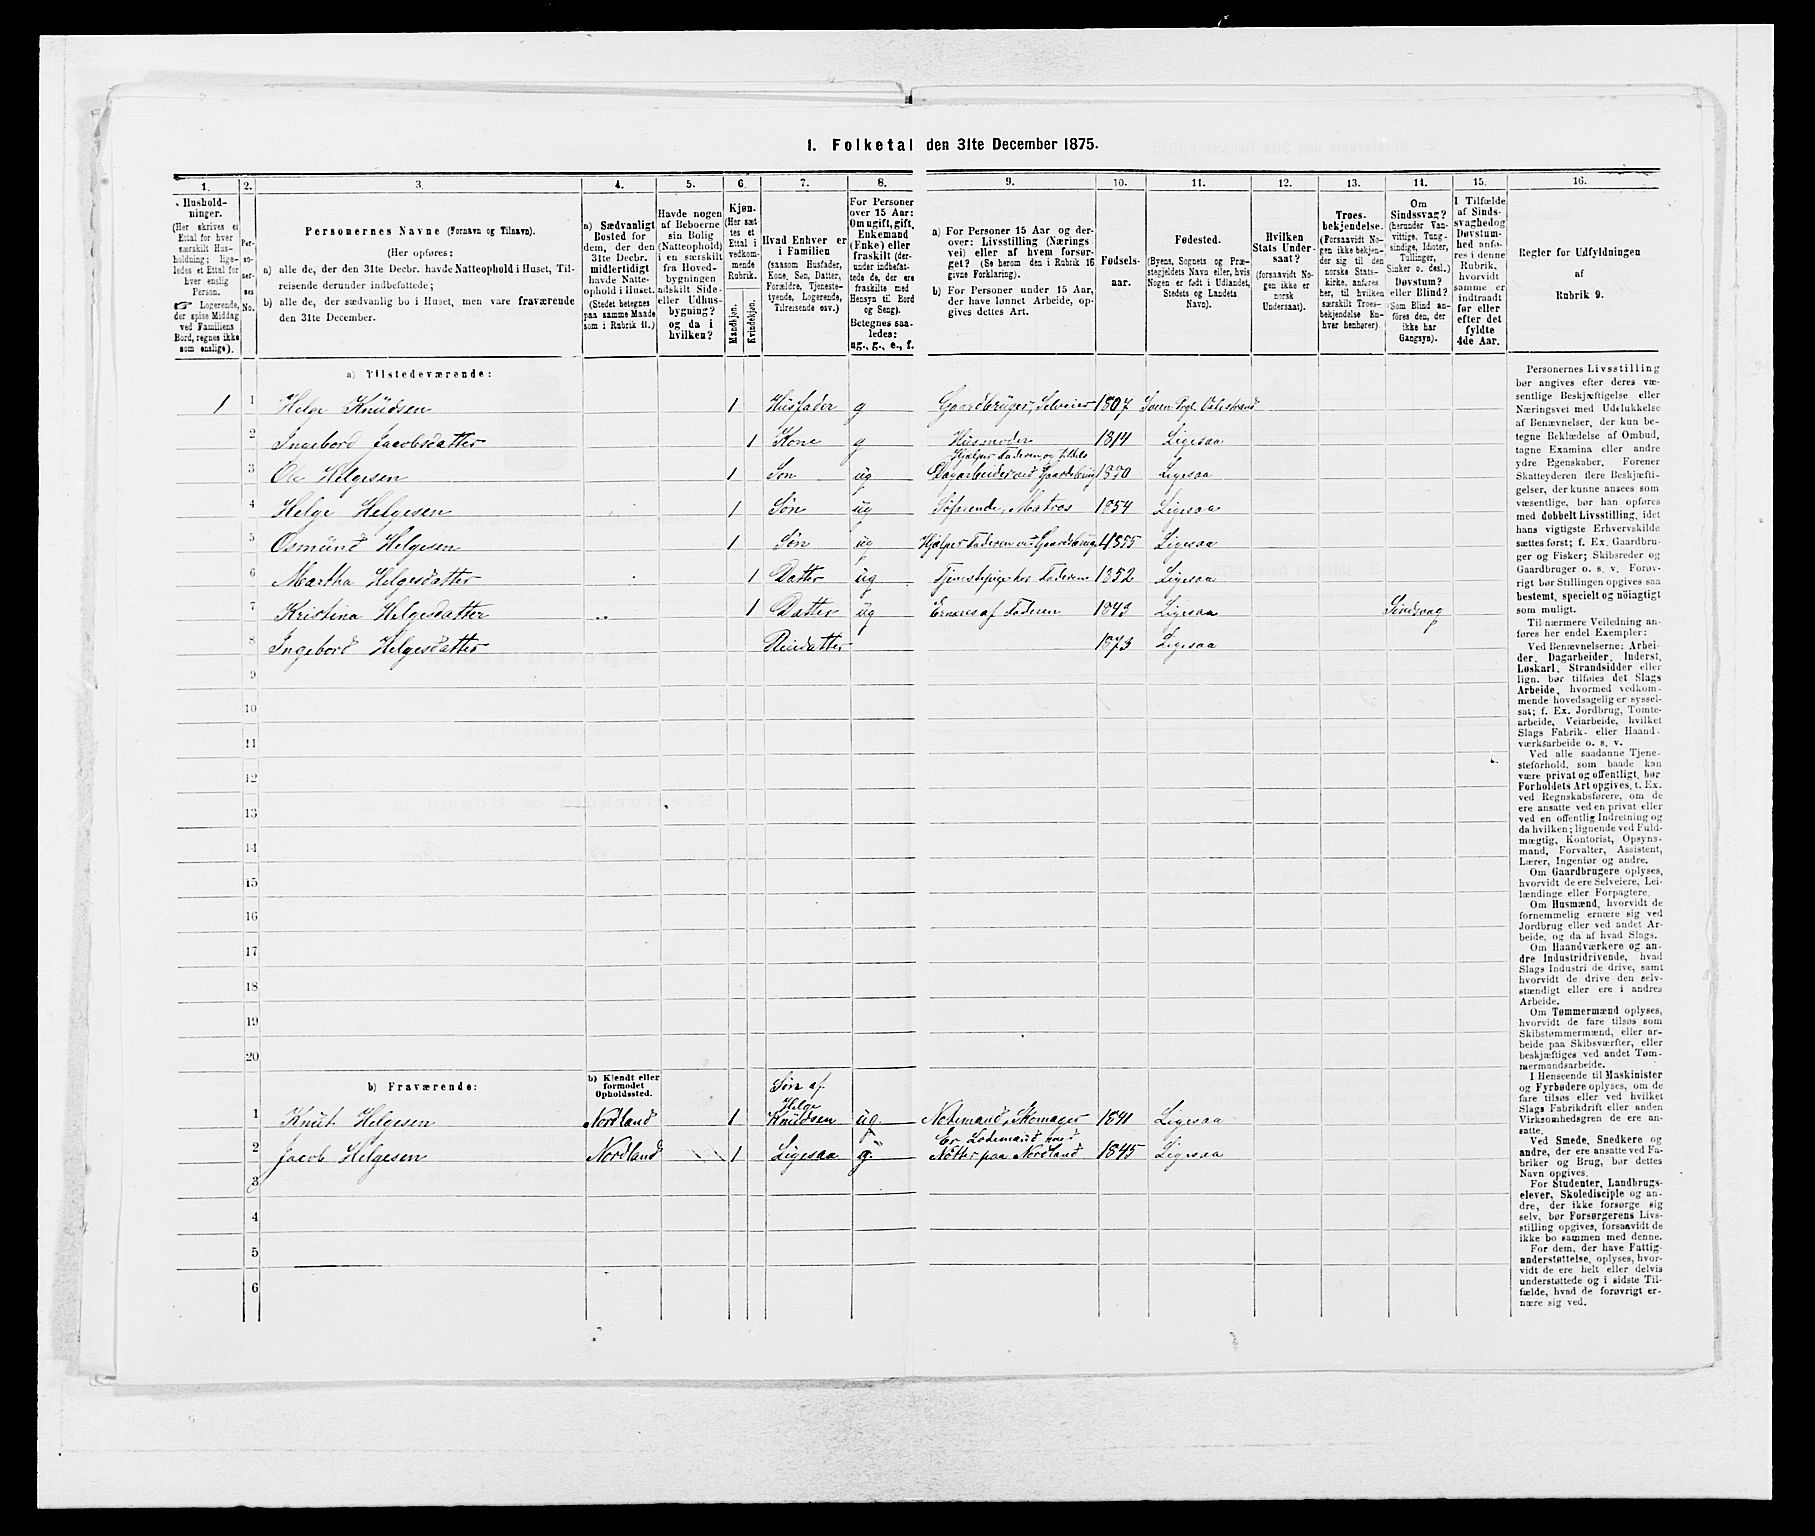 1. Folketal den 31te December 1875.
1. 2. 3. 4. 5. 6. 7. 8. 9. 10. 11. 12. 13. 14. 15. 16.
Hushold-
ninger.
(Her skrives et
Ettal for hver
særskilt Hus-
holdning; lige-
ledes et Ettal for
hver enslig
Person.
☞ Logerende,
der spise Middag
ved Familiens
Bord, regnes ikke
som enslige).
Per-
so-
ner-
nes
No.
Personernes Navne (Fornavn og Tilnavn).
(Her opføres:
a) alle de, der den 31te Decbr. havde Natteophold i Huset, Til-
reisende derunder indbefattede;
b) alle de, der sædvanlig bo i Huset, men vare fraværende
den 31te December.
a) Sædvanligt
Bosted for
dem, der den
31te Decbr.
midlertidigt
havde Natte-
ophold i Huset.
(Stedet betegnes
paa samme Maade
som i Rubrik 11.)
Havde nogen
af Beboerne
sin Bolig
(Natteophold)
i en særskilt
fra Hoved-
bygningen
adskilt Side-
eller Udhus-
bygning?
og da i
hvilken?
Kjøn.
(Her sæt-
tes et
Ettal i
vedkom-
mende
Rubrik.
Mandkjøn.
Kvindekjøn.
Hvad Enhver er
i Familien
(saasom Husfader,
Kone, Søn, Datter,
Forældre, Tjeneste-
tyende, Logerende,
Tilreisende osv.)
For Personer
over 15 Aar:
Om ugift, gift,
Enkemand
(Enke) eller
fraskilt (der-
under indbefat-
tede de, der ere
fraskilte med
Hensyn til Bord
og Seng).
Betegnes saa-
ledes:
ug., g., e., f.
a) For Personer 15 Aar og der-
over: Livsstilling (Nærings
vei) eller af hvem forsør-
get? (Se herom den i Rubrik 16
givne Forklaring).
b) For Personer under 15 Aar,
der have lønnet Arbeide, op-
gives dettes Art.
Fødsels-
aar.
Fødested.
(Byens, Sognets og Præ-
stegjeldets Navn eller, hvis
Nogen er født i Udlandet,
Stedets og Landets
Navn).
Hvilken
Stats Under-
saat?
(forsaavidt No-
gen ikke er
norsk
Undersaat).
Troes-
bekjendelse.
(Forsaavidt No-
gen ikke bekjen-
der sig til den
norske Stats-
kirke, anføres
her, til hvilken
særskilt Troes-
bekjendelse En-
hver henhører).
Om
Sindssvag?
(herunder Van-
vittige, Tung-
sindige, Idioter,
Tullinger,
Sinker o. desl.)
Døvstum?
eller Blind?
Som Blind an-
føres den, der
ikke har
Gangsyn).
I Tilfælde
af Sinds-
svaghed og
Døvstum-
hed anfø-
res i denne
Rubrik,
hvorvidt
samme er
indtraadt
før eller
efter det
fyldte
4de Aar.
Regler for Udfyldningen
af
Rubrik 9.
a) Tilstedeværende:
1 1 Helge Knudsen 1 Husfader g Gaardbruger, Selveier 1807 Søen Prgl. Valestrand
2 Ingebord Jacobsdatter 1 Kone g Husmoder 1814 Ligesaa
Hjælper Faderen og tildels
3 Ole Helgesen 1 Søn ug Dagarbeider ved Gaardsbrug 1850 Ligesaa
4 Helge Helgesen 1 Søn ug Søfarende, Matros 1854 Ligesaa
5 Osmund Helgesen 1 Søn ug Hjælper Faderen ved Gaardsbrug 1855 Ligesaa
6 Martha Helgesdatter 1 Datter ug Tjenestepige hos Faderen 1852 Ligesaa
7 Kristina Helgesdatter 1 Datter ug Erneres af Faderen 1843 Ligesaa Sindsvag
8 Ingebord Helgesdatter Pleiedatter 1873 Ligesaa
9
10
11
12
13
14
15
16
17
18
19
20
b) Fraværende:
b) Kjendt eller
formodet
Opholdssted.
Søn af
Helge
1 Knut Helgesen Nordland 1 Knudsen ug. Nodemand, Skomager 1841 Ligesaa
Er Lodemand hved
2 Jacob Helgesen Nordland 1 Ligesaa g. Notter paa Nordland 1845 Ligesaa
3
4
5
6
Personernes Livsstilling
bør angives efter deres væ-
sentlige Beskjæftigelse eller
Næringsvei med Udelukkelse
af Benævnelser, der kun be-
tegne Beklædelse af Ombud,
tagne Examina eller andre
ydre Egenskaber. Forener
Skatteyderen flere Beskjæfti-
gelser, der kunne ansees som
væsentlige, bør han opføres
med dobbelt Livsstilling, idet
hans vigtigste Erhvervskilde
sættes først; f. Ex. Gaardbru-
ger og Fisker; Skibsreder og
Gaardbruger o. s. v. Forøv-
rigt bør Stillingen opgives saa
bestemt, specielt og nøiagtigt
som muligt.
Til nærmere Veiledning an-
føres her endel Exempler:
Ved Benævnelserne: Arbei-
der, Dagarbeider, Inderst,
Løskarl, Strandsidder eller
lign. bør tilføies det Slags
Arbeide, hvormed vedkom-
mende hovedsagelig er syssel-
sat; f. Ex. Jordbrug, Tomte-
arbeide, Veiarbeide, hvilket
Slags Fabrik- eller Haand-
værksarbeide o. s. v.
Ved alle saadanne Tjene-
steforhold, som baade kan
være privat og offentligt, bør
Forholdets Art opgives, t. Ex.
ved Regnskabsførere, om de
ere ansatte ved en privat eller
ved en offentlig Indretning og
da hvilken; lignende ved Fuld-
mægtig, Kontorist, Opsyns-
mand, Forvalter, Assistent,
Lærer, Ingeniør og andre.
Om Gaardbrugere oplyses,
hvorvidt de ere Selveiere, Lei-
lændinge eller Forpagtere.
Om Husmænd, hvorvidt de
fornemmelig ernære sig ved
Jordbrug eller ved andet Ar-
beide, og da af hvad Slags.
Om Haandværkere og an-
dre Industridrivende, hvad
Slags Industri de drive, samt
hvorvidt de drive den selv-
stændigt eller ere i andres
Arbeide.
Om Tømmermænd oplyses,
hvorvidt de fare tilsøs som
Skibstømmermænd, eller ar-
beide paa Skibsværfter, eller
beskjæftiges ved andet Tøm-
mermandsarbeide.
I Henseende til Maskinister
og Fyrbødere oplyses, om de
fare tilsøs eller ved hvilket
Slags Fabrikdrift eller anden
Virksomhedsgren de ere an-
satte.
Ved Smede, Snedkere og
andre, der ere ansatte ved Fa-
briker og Brug, bør dettes
Navn opgives.
For Studenter, Landbrugs-
elever, Skoledisciple og an-
dre, der ikke forsørge sig
selv, bør Forsørgerens Livs-
stilling opgives, forsaavidt de
ikke bo sammen med denne.
For dem, der have Fattig-
understøttelse, oplyses, hvor-
vidt de ere helt eller delvis
understøttede og i sidste Til-
fælde, hvad de forøvrigt er-
nære sig ved.